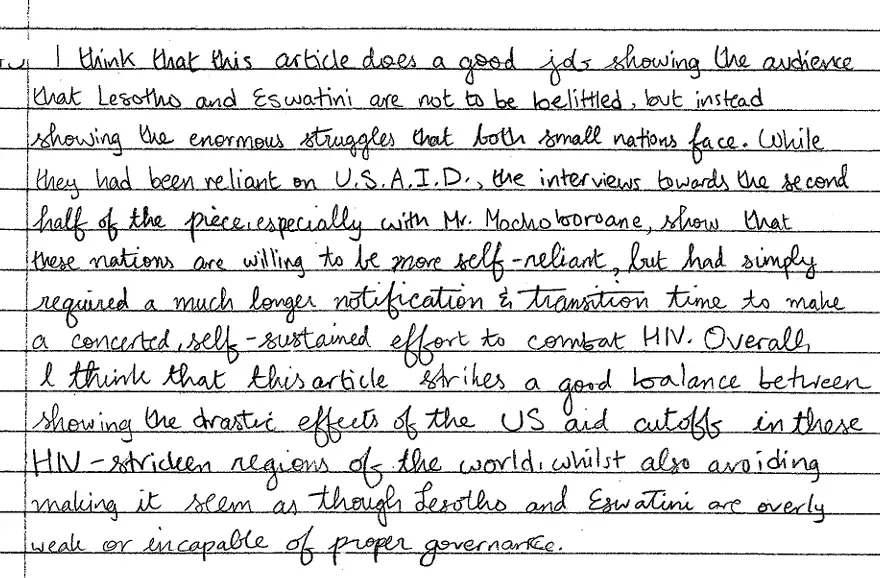 I think that this article does a good job showing the audience
that Lesotho and Eswatini are not to be belittled, but instead
showing the enormous struggles that both small nations face. While
they had been reliant on U.S.A.I.D., the interviews towards the second
half of the piece, especially with Mr. Mochoboroane, show that
these nations are willing to be more self-reliant, but had simply
required a much longer notification & transition time to make
a concerted, self-sustained effort to combat HIV. Overall,
I think that this article strikes a good balance between
showing the drastic effects of the US aid cutoffs in these
HIV-stricken regions of the world, whilst also avoiding
making it seem as though Lesotho and Eswatini are overly
weak or incapable of proper governance.